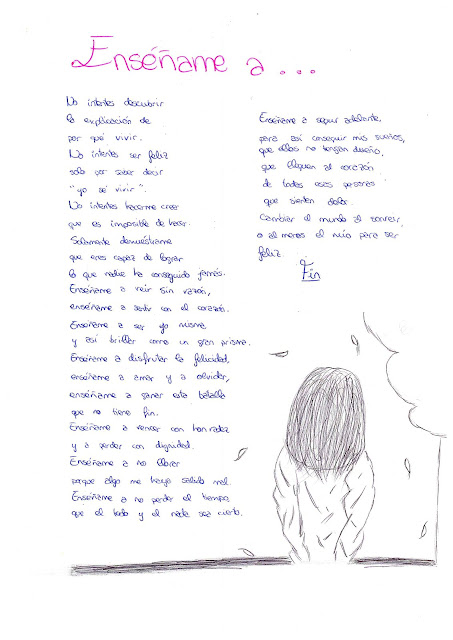 Enséñame a...
No intentes descubrir
la explicación de
por qué vivir.
No intentes ser feliz
solo por saber decir
"yo sé vivir".
No intentes hacerme creer
que es imposible de hacer.
Solamente demuéstrame
que eres capaz de lograr
lo que nadie ha conseguido jamás.
Enséñame a reír sin razón,
enséñame a sentir con el corazón.
Enséñame a ser yo misma
y así brillar como un gran prisma.
Enséñame a disfrutar la felicidad,
enséñame a amar y a olvidar,
enséñame a ganar esta batalla
que no tiene fin.
Enséñame a vencer con honradez
y a perder con dignidad.
Enséñame a no llorar
porque algo me haya salido mal.
Enséñame a no perder el tiempo,
que el todo y el nada sea cierto.
Enséñame a seguir adelante,
para así conseguir mis sueños,
que ellos no tengan dueño,
que lleguen al corazón
de todas esas personas
que sienten dolor.
Cambiar el mundo al sonreír,
o al menos el mío para ser
feliz.
Fin